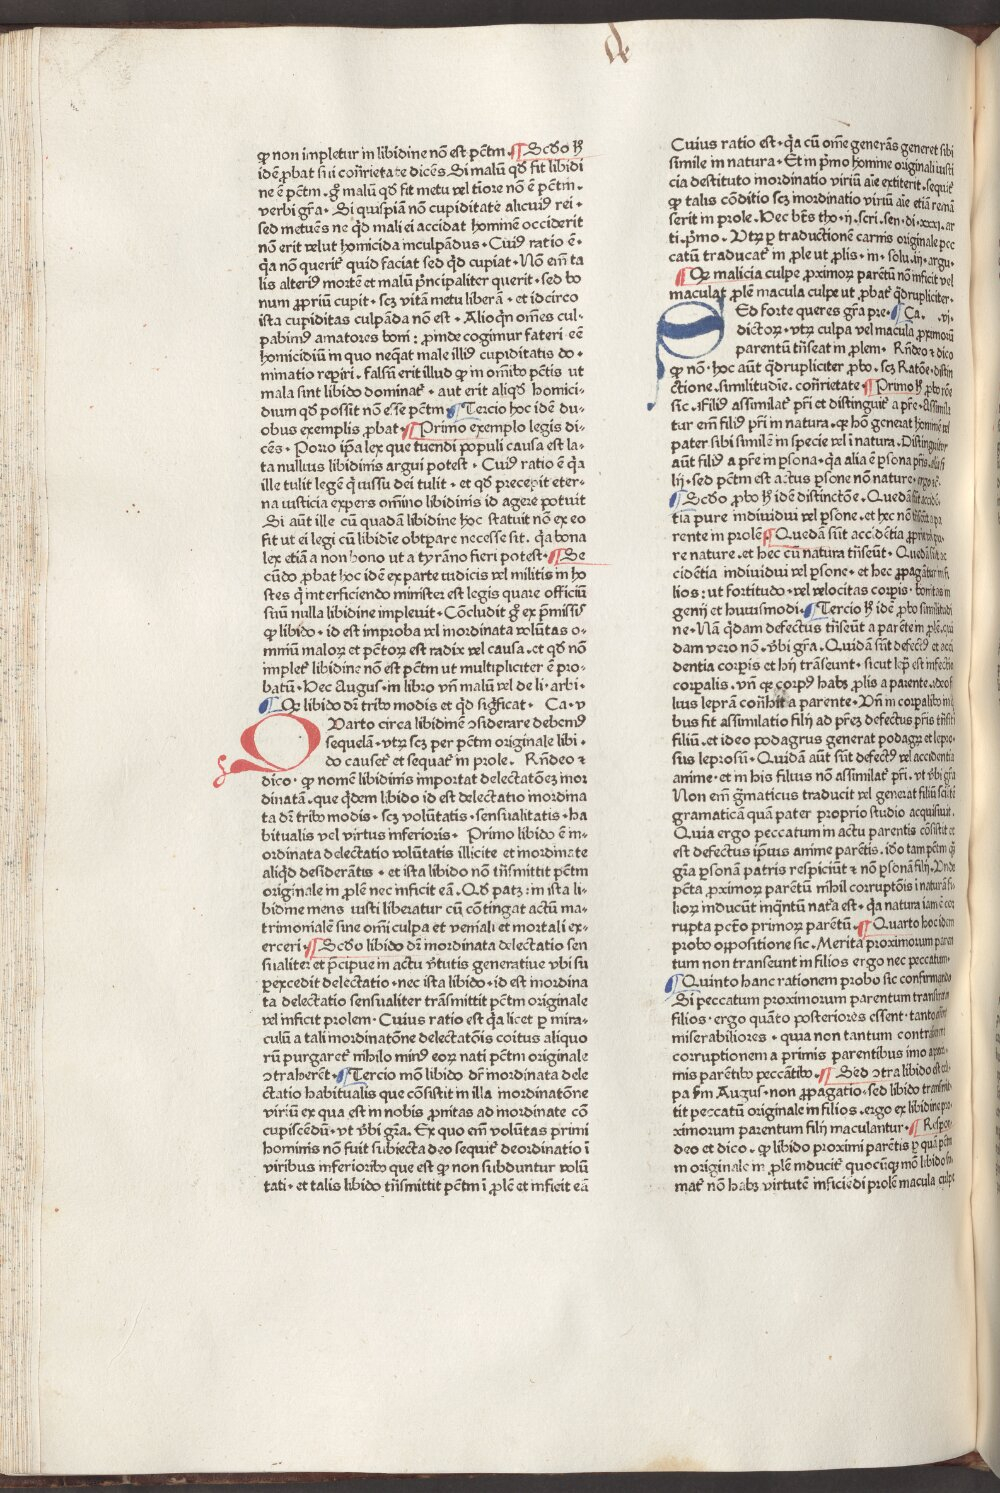 ꝙ non impletur in libidine nõ est pc̃tm ¶ Scd̃o h̃
idẽ ꝓbat sui cõr̃rietate dicẽs. Si malũ qd̃ fit libidi
ne ẽ pc̃tm . g̃ malũ qd̃ fit metu vel tiore nõ ẽ pc̃tm .
verbi gr̃a . Si quispiã nõ cupiditate alicuiꝰ rei .
sed metuẽs ne qd̃ mali ei accidat hominẽ occiderit
nõ erit velut homicida inculpãdus . Cuiꝰ ratio ẽ .
q̃a nõ querit̃ quid faciat sed qd̃ cupiat . Nõ em̃ ta
lis alteriꝰ mortẽ et malũ p̃ncipaliter querit . sed bo
num ꝓpriũ cupit . scꝫ vitã metu liberã . et idcirco
ista cupiditas culpãda nõ est . Alioq̃n om̃es cul-
pabimꝰ amatores boni : ꝓinde cogimur fateri eẽ
homicidiũ in quo neq̃at male illiꝰ cupiditatis do .
minatio rep̃iri . falsũ erit illud ꝙ in om̃ibꝰ pc̃tis ut
mala sint libido dominat̃ . aut erit aliqd̃ homici-
dium qd̃ possit nõ esse pc̃tm ¶ Tercio hoc idẽ du-
obus exemplis ꝓbat . ¶ Primo exemplo legis di-
cẽs . Porro ip̃a lex que tuendi populi causa est la-
ta nullius libidinis argui potest . Cuiꝰ ratio ẽ q̃a
ille tulit legẽ q̃ iussu dei tulit . et qd̃ precepit eter-
na iusticia expers om̃ino libidinis id agere potuit
Si aũt ille cũ quadã libidine hoc statuit nõ ex eo
fit ut ei legi cũ libidĩe obtꝑare necesse sit . q̃a bona
lex etiã a non bono ut a tyrãno fieri potest . ¶ Se
cũdo ꝓbat hoc idẽ ex parte iudicis vel militis in ho
stes q̃ interficiendo minister est legis quare officiũ
suũ nulla libidine impleuit . Cõcludit g̃ ex p̃missis
ꝙ libido . id est improba vel inordinata volũtas o-
mniũ maloꝝ et pc̃toꝝ est radix vel causa . et qd̃ nõ
implet̃ libidine nõ est pc̃tm ut multipliciter ẽ pro-
batũ . Hec Augus . in libro vñ malũ vel de li . arbi .
¶ Qꝫ libido dr̃ tribꝰ modis et qd̃ sig̃ficat . Ca . v
Quarto circa libidinẽ ɔsiderare debemꝰ
sequelã . vtrꝫ scꝫ per pc̃tm originale libi .
do causet̃ et sequat̃ in prole . Rñdeo ⁊
dico . ꝙ nomẽ libidinis importat delectatõeꝫ inor
dinatã . que q̃dem libido id est delectatio inordina
ta dr̃ tribꝰ modis . scꝫ volũtatis . sensualitatis . ha
bitualis vel virtus inferioris . Primo libido ẽ in-
ordinata delectatio volũtatis illicite et inordinate
aliqd̃ desiderãtis . et ista libido nõ tr̃nsmittit pc̃tm
originale in ꝓlẽ nec inficit eã . Qd̃ patꝫ : in ista li-
bidine mens iusti liberatur cũ cõtingat actũ ma-
trimonialẽ sine omni culpa et veniali et mortali ex-
erceri . ¶ Scd̃o libido dr̃ inordinata delectatio sen
sualiter et p̃cipue in actu v̾tutis generatiue vbi su
perexcedit delectatio . nec ista libido . id est inordina
ta delectatio sensualiter trãsmittit pc̃tm originale
vel inficit prolem . Cuius ratio est q̃a licet ꝑ mira-
culũ a tali inordinatõne delectatõis coitus aliquo
rũ purgaret̃ nihilo minꝰ eoꝝ nati pc̃tm originale
ɔtraherẽt . ¶ Tercio mõ libido dr̃ inordinata dele
ctatio habitualis que cõsistit in illa inordinatõne
viriũ ex qua est in nobis ꝓnitas ad inordinate cõ
cupiscẽdũ . vt v̾bi gr̃a . Ex quo em̃ volũtas primi
hominis nõ fuit subiecta deo sequit̃ deordinatio ĩ
viribus inferioribꝰ que est ꝙ non subduntur volũ
tati . et talis libido tr̃nsmittit pc̃tm ĩ ꝓlẽ et inficit eã
Cuius ratio est . q̃a cũ om̃e generãs generet sibi
simile in natura . Et in p̃mo homine originali iusti
cia destituto inordinatio viriũ aĩe extiterit . sequit̃
ꝙ talis cõditio scꝫ inordinatio viriũ aĩe etiã remã
serit in prole . Hec bt̃s tho . ij . scri . sen . di . xxxj . ar
ti . p̃mo . Vtrꝫ ꝑ traductionẽ carnis originale pec
catũ traducat̃ in ꝓle ut ꝓlis . in . solu . iij . argu .
¶ Qꝫ malicia culpe ꝓximoꝝ parẽtũ nõ inficit vel
maculat ꝓlẽ macula culpe ut ꝓbat̃ q̃drupliciter .
Sed forte queres gr̃a pre . ¶ Ca . vj .
dictoꝝ . vtrꝫ culpa vel macula ꝓximorũ
parentũ tr̃nseat in ꝓlem . Rñdeo ⁊ dico
ꝙ nõ . hoc aũt q̃drupliciter ꝓbo . scꝫ Ratõe . distin
ctione . similitudĩe . cõr̃rietate ¶ Primo h̃ ꝓbo rõe
sic . Filiꝰ assimilat̃ pr̃i et distinguit̃ a pr̃e . Assimila
tur em̃ filiꝰ pr̃i in natura . ꝙ hõ generat hominẽ vel
pater sibi similẽ in specie vel ĩ natura . Distinguitur
aũt filiꝰ a pr̃e in ꝑsona . q̃a alia ẽ ꝑsona pr̃is . alia fi
lij . sed pc̃tm est actus ꝑsone nõ nature . ergo ⁊c̃ .
¶ Scd̃o ꝓbo h̃ idẽ distinctõe . Quedã sũt accidẽ
tia pure indiuidui vel ꝑsone . et hec nõ tr̃nseũt a pa
rente in prolẽ ¶ Quedã sũt accidẽtia ꝓpria pu .
re nature . et hec cũ natura tr̃nseũt . Quedã sũt ac
cidẽtia indiuidui vel ꝑsone . et hec ꝓpagãtur in fi
lios : ut fortitudo . vel velocitas corꝑis . bonitas in
genij et huiusmodi . ¶ Tercio h̃ idẽ ꝓbo similitudi
ne . Nã q̃dam defectus tr̃nseũt a parẽte in ꝓlẽ . qui
dam vero nõ . v̾bi gr̃a . Quidã sũt defectꝰ et acci
dentia corꝑis et hij trãseunt . sicut lepra est infectio
corꝑalis . vñ qꝫ corpꝰ habꝫ ꝓlis a parente . ideo fi
lius leprã cõtr̃hit a parente . Vñ in corꝑalibꝰ in qͥ
bus fit assimilatio filij ad pr̃eꝫ defectus pr̃is tr̃nsit ĩ
filiũ . et ideo podagrus generat podagrꝫ et lepro-
sus leprosũ . Quidã aũt sũt defectꝰ vel accidentia
anime . et in his filius nõ assimilat̃ pr̃i . ut v̾bi gr̃a
Non em̃ g̃maticus traducit vel generat filiũ sciẽtẽ
gramaticã quã pater proprio studio acquisiuit .
Quia ergo peccatum in actu parentis cõsistit et
est defectus ip̃ius anime parẽtis . ido tam pc̃tm q̃
gr̃a ꝑsonã patris respiciũt ⁊ nõ ꝑsonã filij . Vnde
pc̃ta ꝓximoꝝ parẽtũ nihil corruptõis ĩ naturã fi-
lioꝝ inducunt inq̃ntũ nat̃a est . q̃a natura iam ẽ cor
rupta pc̃to primoꝝ parẽtũ . ¶ Quarto hoc idem
probo oppositione sic . Merita proximorum paren
tum non transeunt in filios ergo nec peccatum .
¶ Quinto hanc rationem probo sic confirmando
Si peccatum proximorum parentum transiret in
filios . ergo quãto posteriores essent . tanto
miserabiliores . quia non tantum contraherent
corruptionem a primis parentibus imo a proxi-
mis parẽtibꝰ peccãtibꝰ . ¶ Sed ɔtra libido est cul-
pa ẜm Augus . non ꝓpagatio . sed libido transmit-
tit peccatũ originale in filios . ergo ex libidine pro-
ximorum parentum filij maculantur . ¶ Respon-
deo et dico . ꝙ libido proximi parẽtis ꝑ quã pc̃tm
m originale in ꝓlẽ inducit̃ quocũqꝫ mõ libido su-
mat̃ nõ habꝫ virtutẽ inficiẽdi prolẽ macula culpe